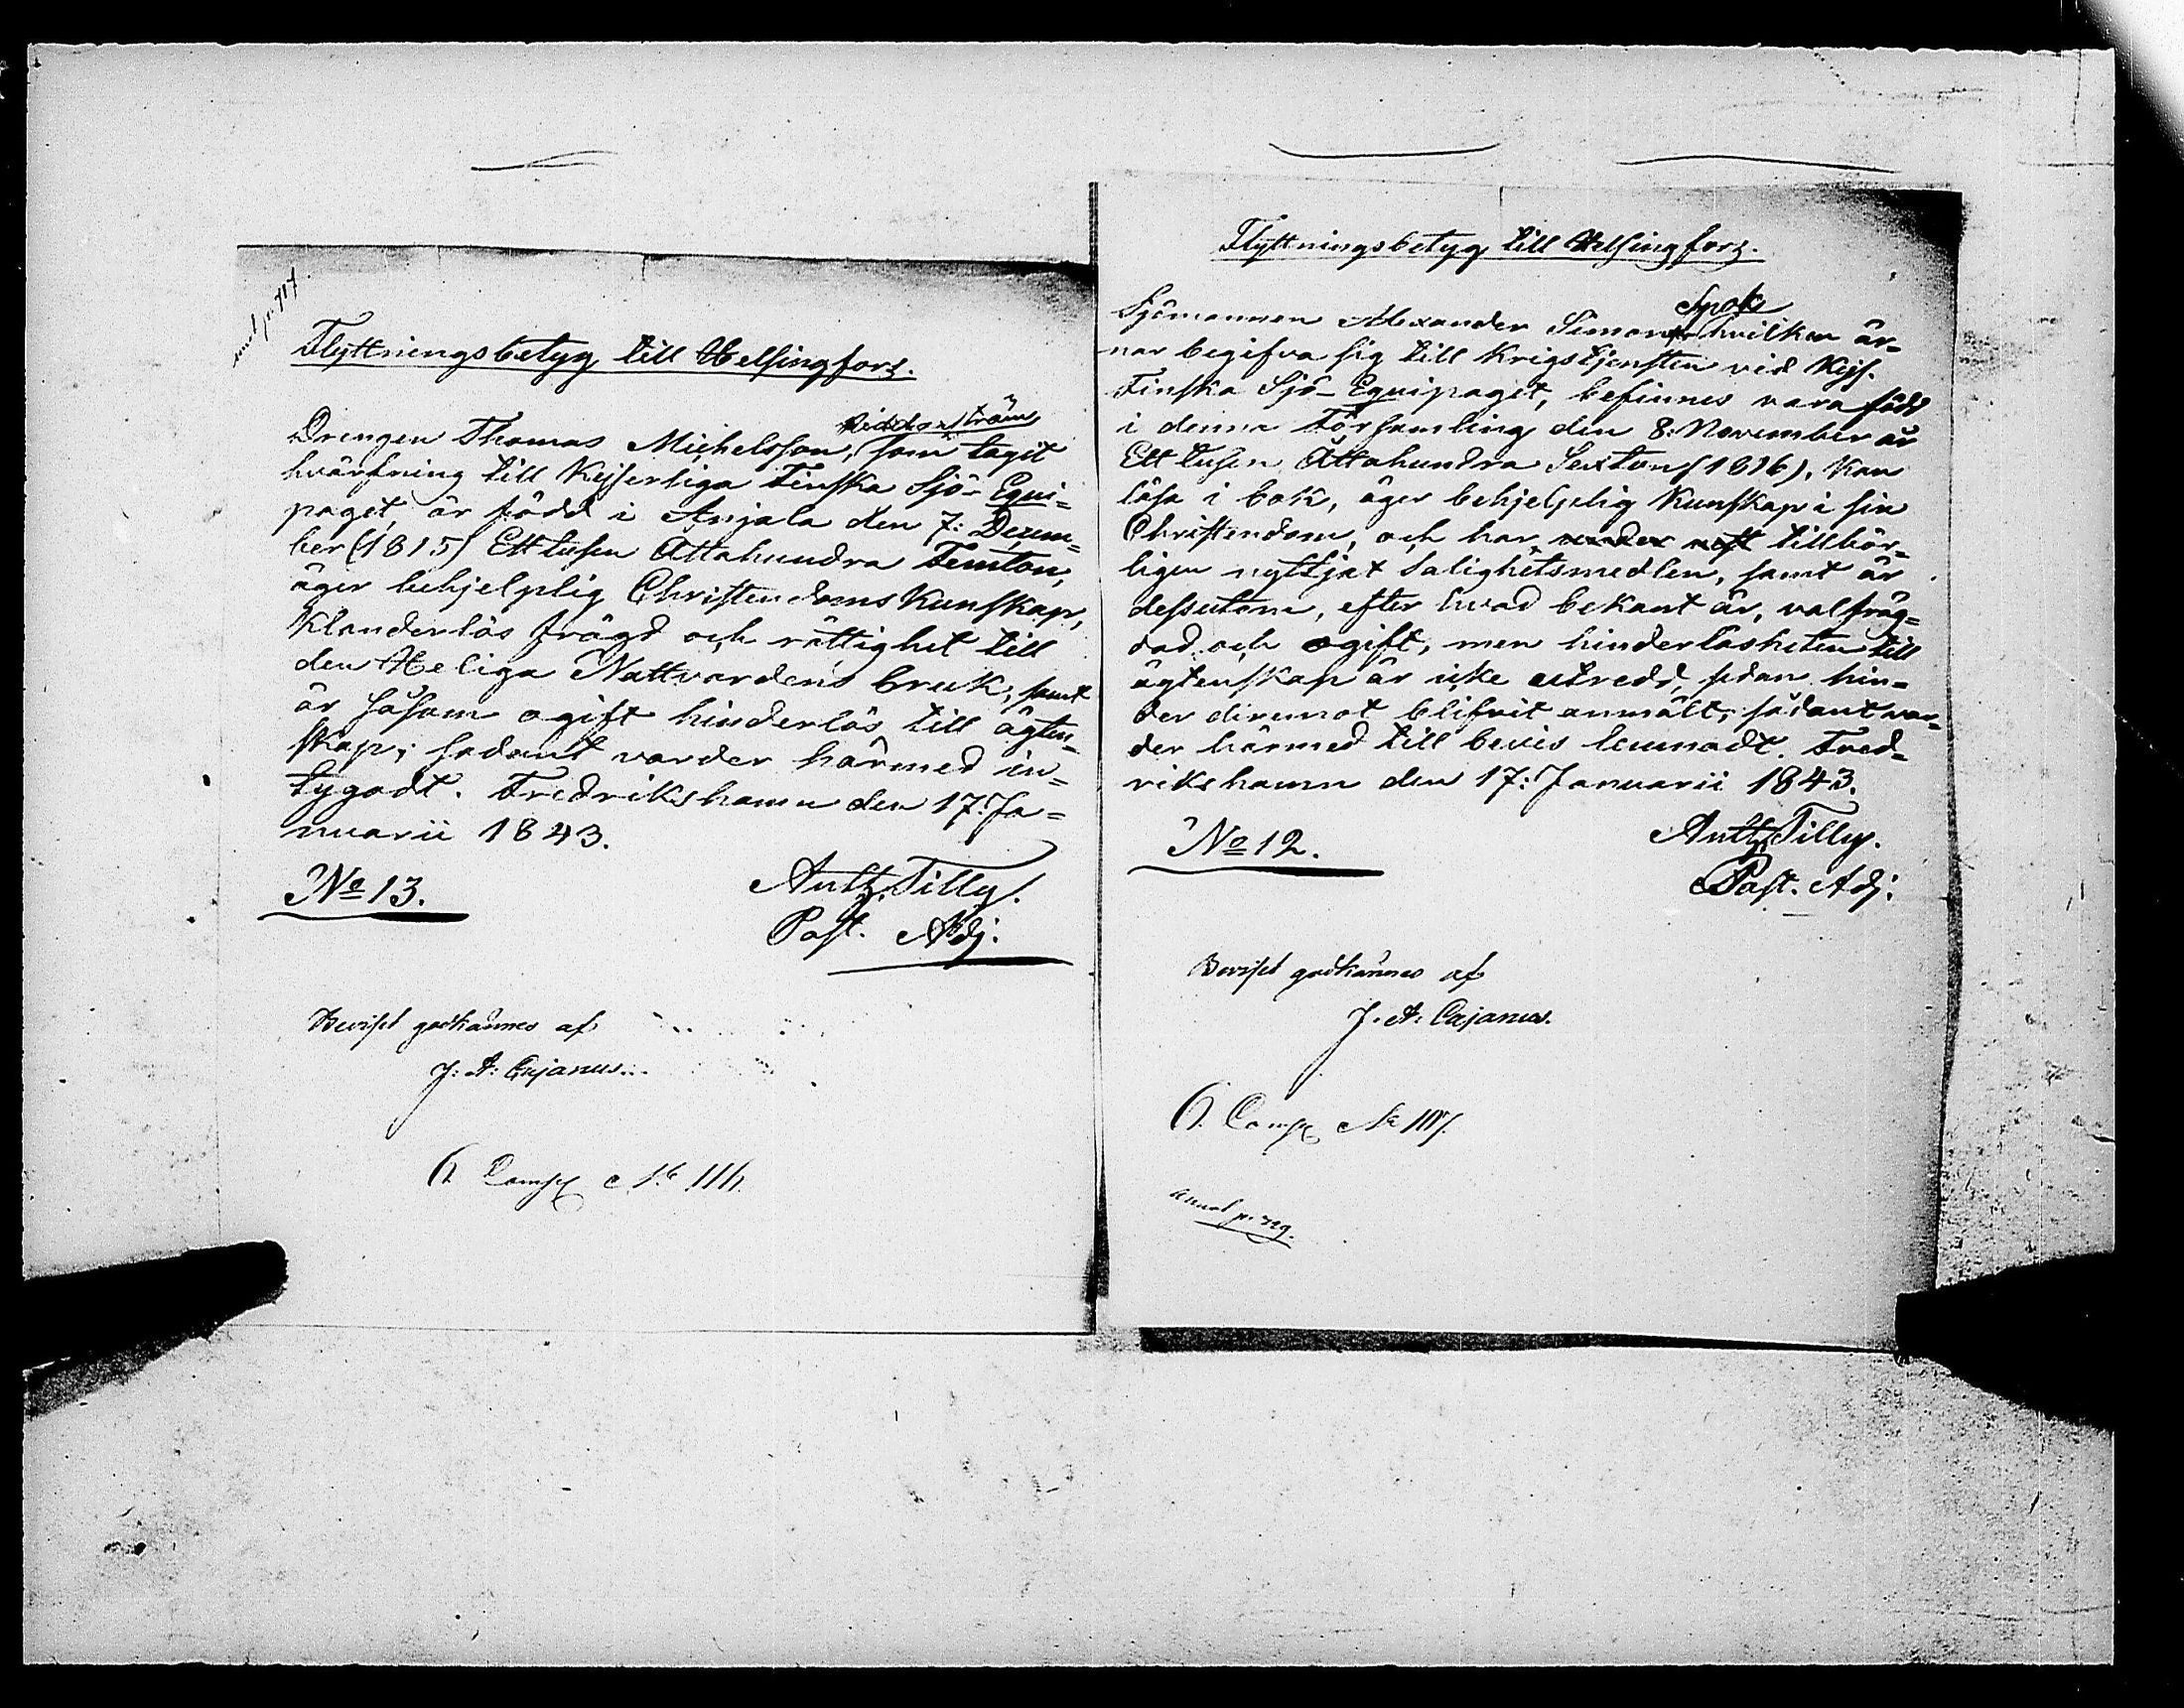 Flyttningsbetyg till Helsingfors.
Ridderström
Drengen Thomas Michelsson, som tagit
hvärfning till Kejserliga Finska Sjö-Equi-
paget, är född i Anjala den 7: Decem-
ber (1815) Ett tusen Åttahundra Femton,
äger behjelplig Christendoms Kunskap,
Klanderlös frägd och rättighet till
den Heliga Nattvardens bruk, samt
är såsom ogift hinderlös till ägten-
skap; sådant varder härmed in-
tygadt. Fredrikshamn den 17: Ja-
nuarii 1843.
No 13.
Anth. Tilly.
Past. Adj.
Beviset godkännes af
J: A: Cajanus.
6. Comp No 116.
Flyttningsbetyg till Helsingfors.
Spok
Sjömannen Alexander Simon hvilken är-
nar begifva sig till Krigstjensten vid Kejs.
Finska Sjö-Equipaget, befinnes vara född
i denna Församling den 8: November år
Ett tusen Åttahundra Sexton (1816). Kan
läsa i bok, äger behjelplig Kunskap i sin
Christendom, och har tillbör-
ligen nyttjat Salighetsmedlen, samt är
dessutom, efter hvad bekant är, välfräg-
dad och ogift, men hinderlösheten till
ägtenskap är icke utredd, sedan hin-
der deremot blifvit anmält, sådant var-
der härmed till bevis lemnadt. Fred-
rikshamn den 17: Januarii 1843.
No 12.
Anth. Tilly.
Past. Adj.
Beviset godkännes af
J. A: Cajanus.
6. Comp No